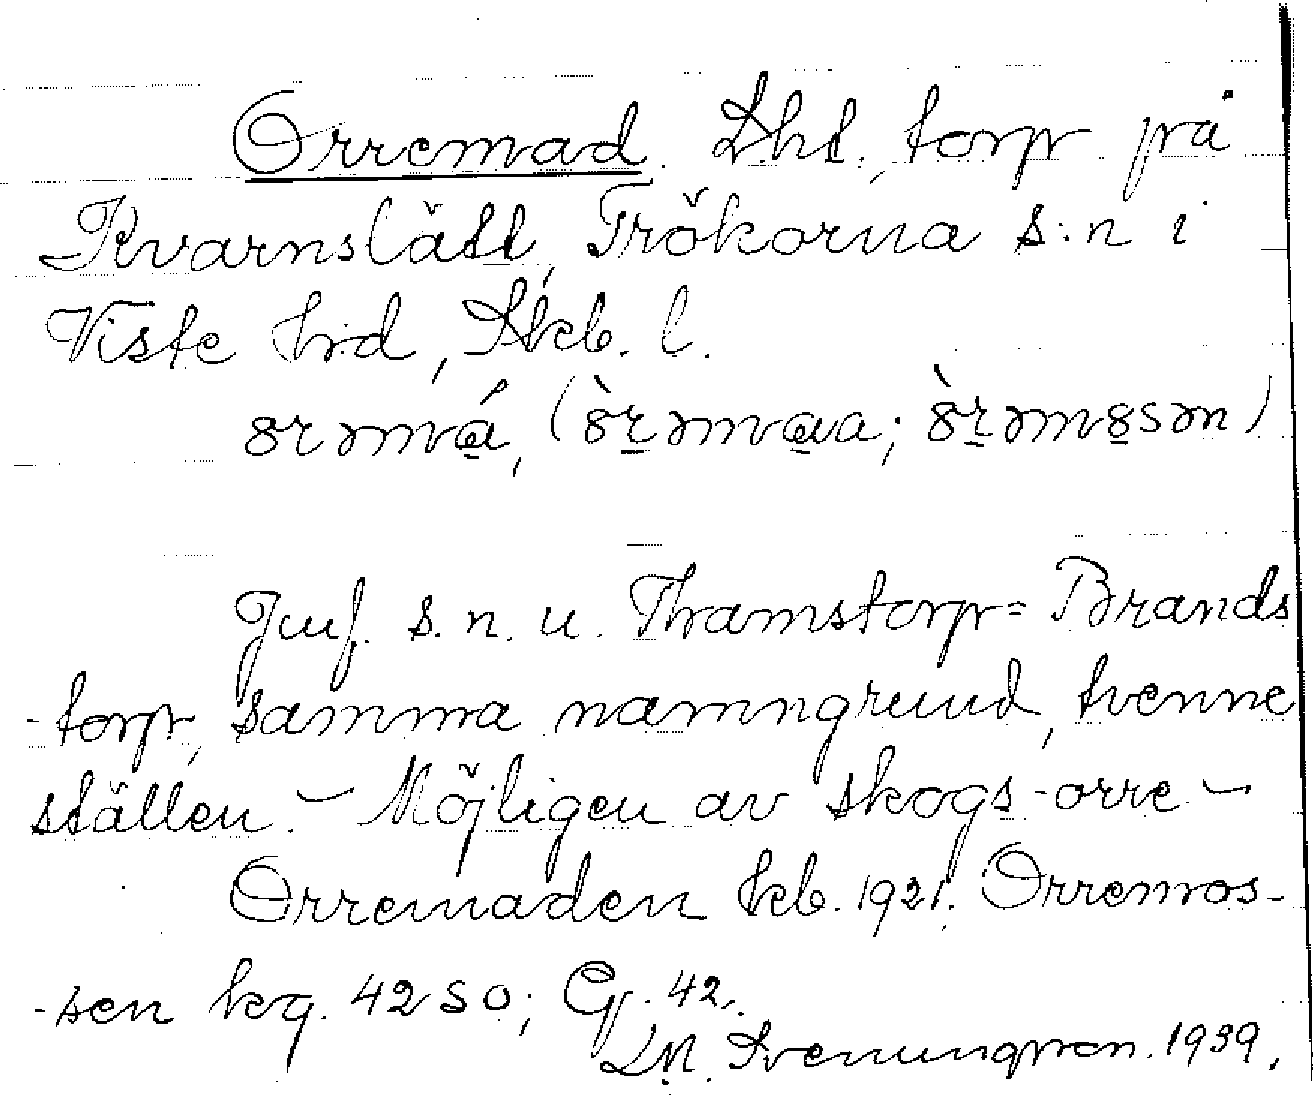 Orremad. Lht., torp på
Kvarnslätt, Trökörna s:n i
Viste hrd, Skb. l.
ȣrəmá, (ȣ̀rəmaa; ȣ̀rəmȣsən)
Jmf. s.n. u. Thamstorp = Brands
-torp, samma namngrund, tvenne
ställen. – Möjligen av skogs-orre –
Orremaden kb. 1921. Orremos-
-sen kg. 42 SO; Gj. 42.
Svenungsson. 1939.